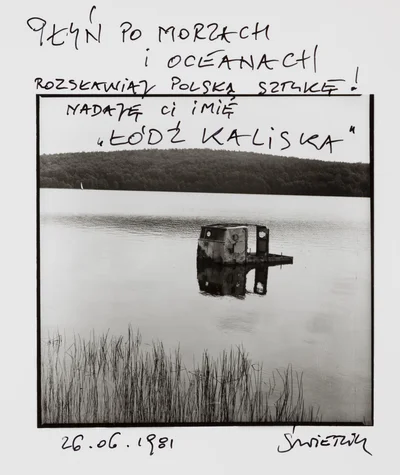 PŁYŃ PO MORZACH
i OCEANACH
ROZSŁAWIAJ POLSKĄ SZTUKĘ!
NADAJĘ Ci iMiĘ
„ŁÓDŹ KALiSKA”
26.06.1981 ŚWIETLIK